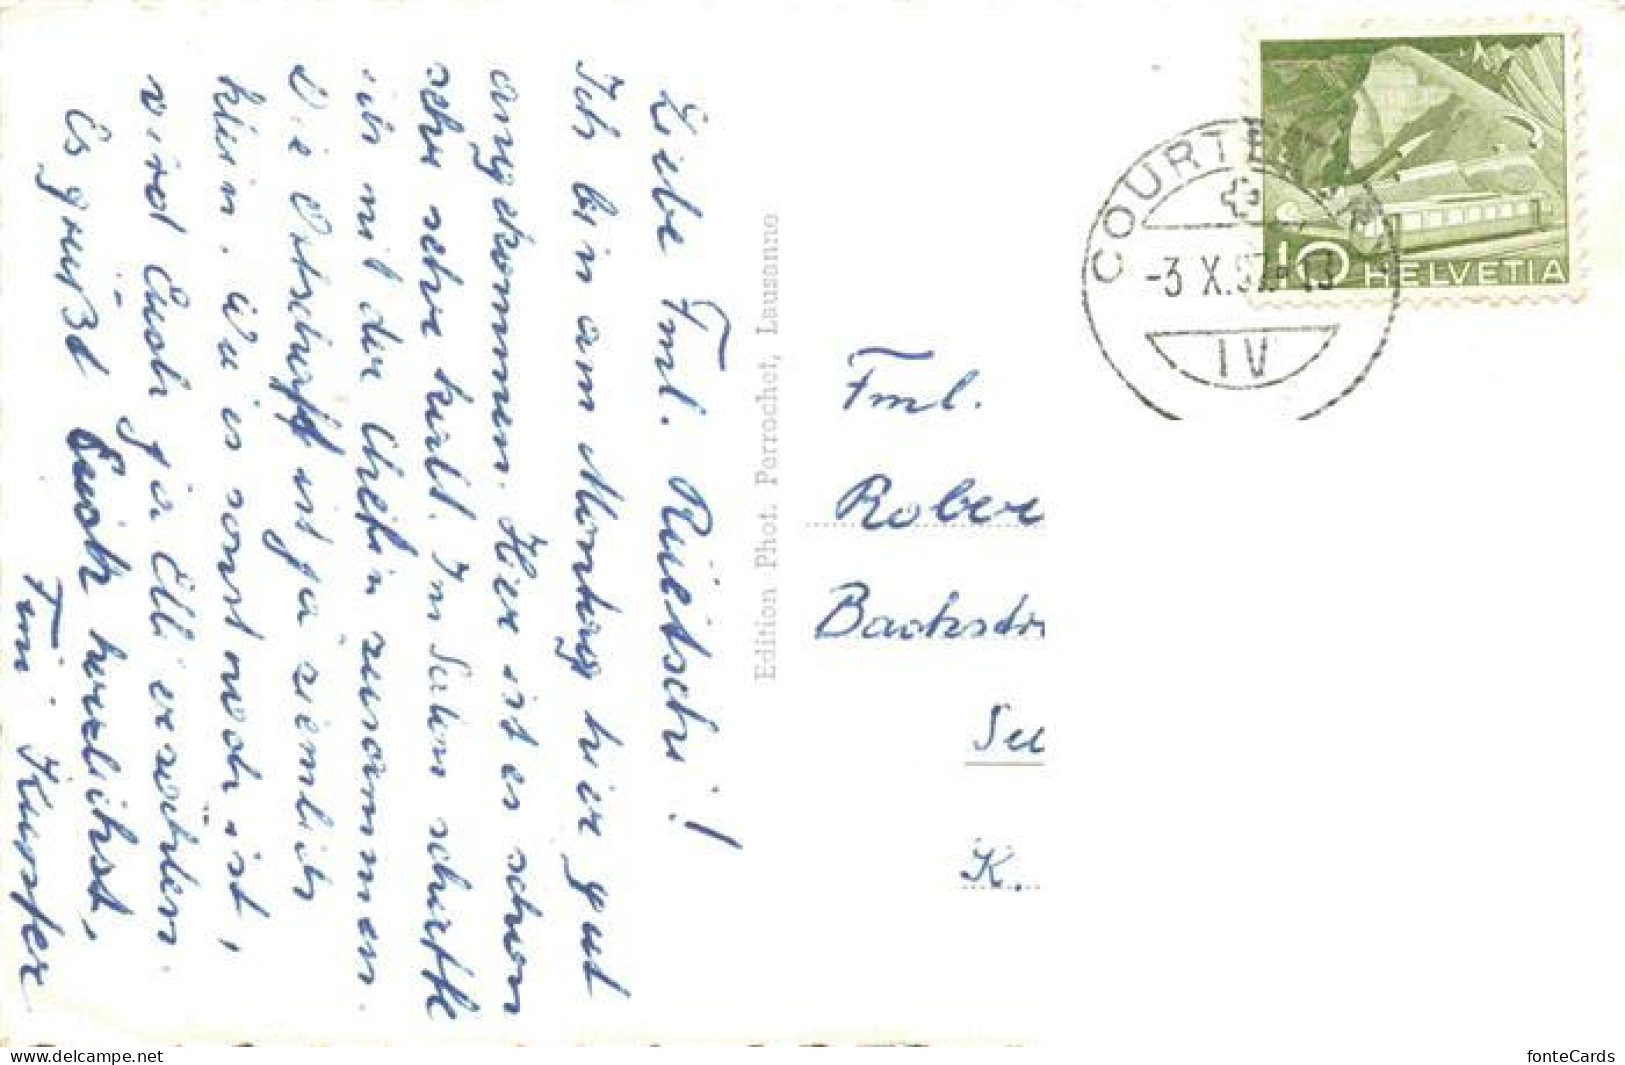 Liebe Fml. Rüetschi!
Ich bin am Montag hier gut
angekommen. Hier ist es schon
sehr sehr kalt. Im Salon
ich mit der Chefin zusammen.
Die Ortschaft ist ja ziemlich
klein. Wie es sonst noch ist,
wird Euch ja Elli erzählen.
Es grüßt Euch herzlichst,
Edition Phot. Perrochet, Lausanne
Fml.
Rober
Bachstr
Su
K.
COURT
-3 X.
IV
10 HELVETIA
www.delcampe.net
fonteCards